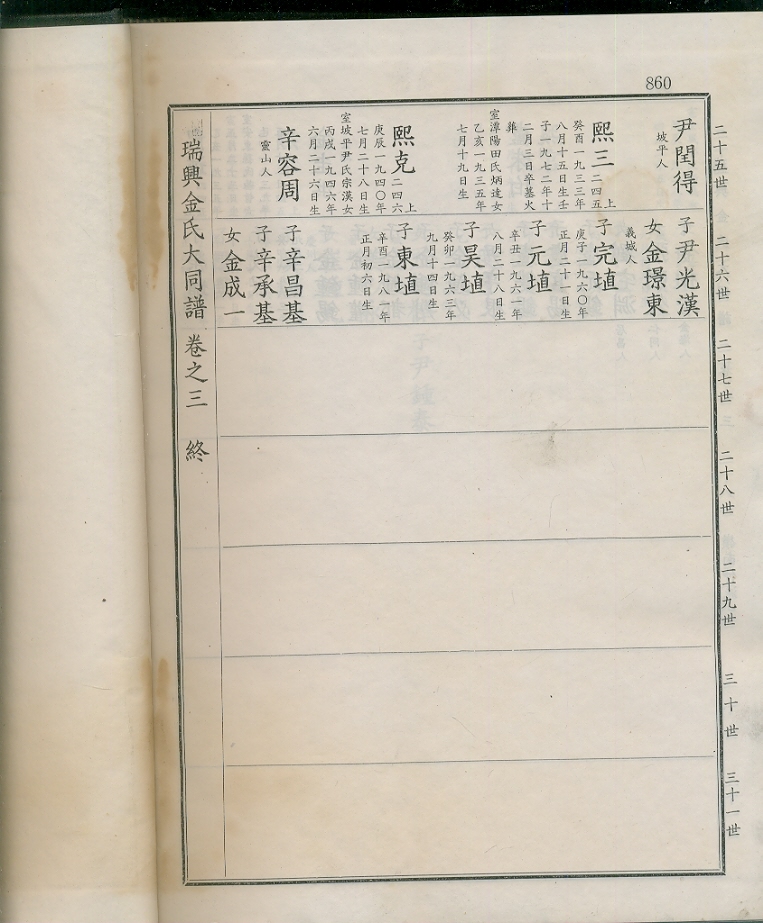 860
二十五世
二十六世
二十七世
二十八世
二十九世
三十世
三十一世
尹閏得
坡平人
熙三 二四五上
癸酉一九三三年
八月十五日生壬
子一九七二年十
二月三日卒墓火
葬
室潭陽田氏炳逵女
乙亥一九三五年
七月十九日生
熙克 二四六上
庚辰一九四〇年
七月二十八日生
室坡平尹氏宗漢女
丙戌一九四六年
六月二十六日生
辛容周
靈山人
子尹光漢
女金璟東
義城人
子完埴
庚子一九六〇年
正月二十一日生
子元埴
辛丑一九六一年
八月二十八日生
子昊埴
癸卯一九六三年
九月十四日生
子東埴
辛酉一九八一年
正月初六日生
子辛昌基
子辛承基
女金成一
瑞興金氏大同譜 卷之三 終